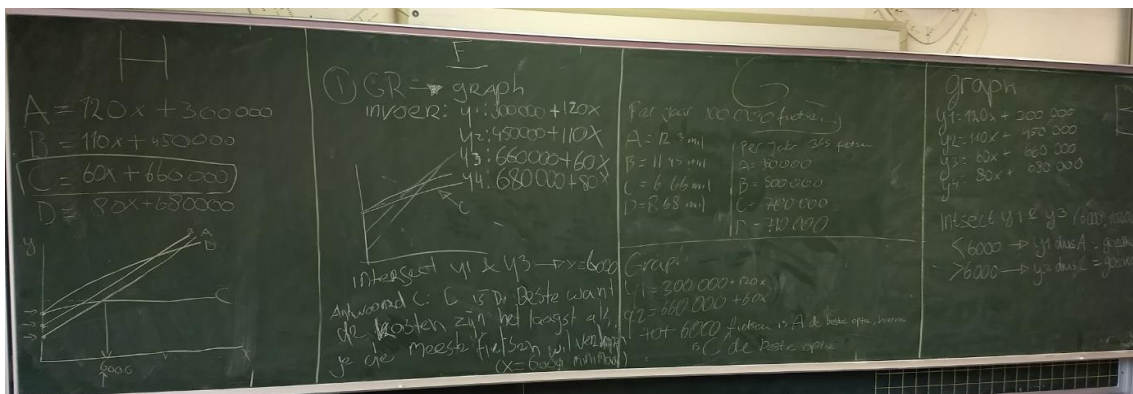 H
A = 120x + 300000
B = 110x + 450000
C = 60x + 660000
D = 80x + 680000
y
A
D
C
6000
E
① GR → graph
invoer: y1: 300000 + 120x
y2: 450000 + 110x
y3: 660000 + 60x
y4: 680000 + 80x
C
intersect y1 & y3 → x=6000
Antwoord C: C is De Beste want
de kosten zijn het laagst als
je de meeste fietsen wil
(x=6000 minimaal)
G
Per jaar 100 000 fietsen
A = 12.3 mil
B = 11.45 mil
C = 6.66 mil
D = 8.68 mil
Per jaar 365 fietsen
B = 500000
C = 700.000
D = 710 000
Graph:
y1 = 300.000 + 120x
y2 = 660.000 + 60x
tot 6000 fietsen is A de beste optie,
is C de beste optie
graph
y1 = 120x + 300 000
y2 = 110x + 450 000
y3 = 60x + 660 000
y4 = 80x + 680 000
Intsect y1 & y3
<6000 → y1 dus A =
>6000 → y3 dus C =